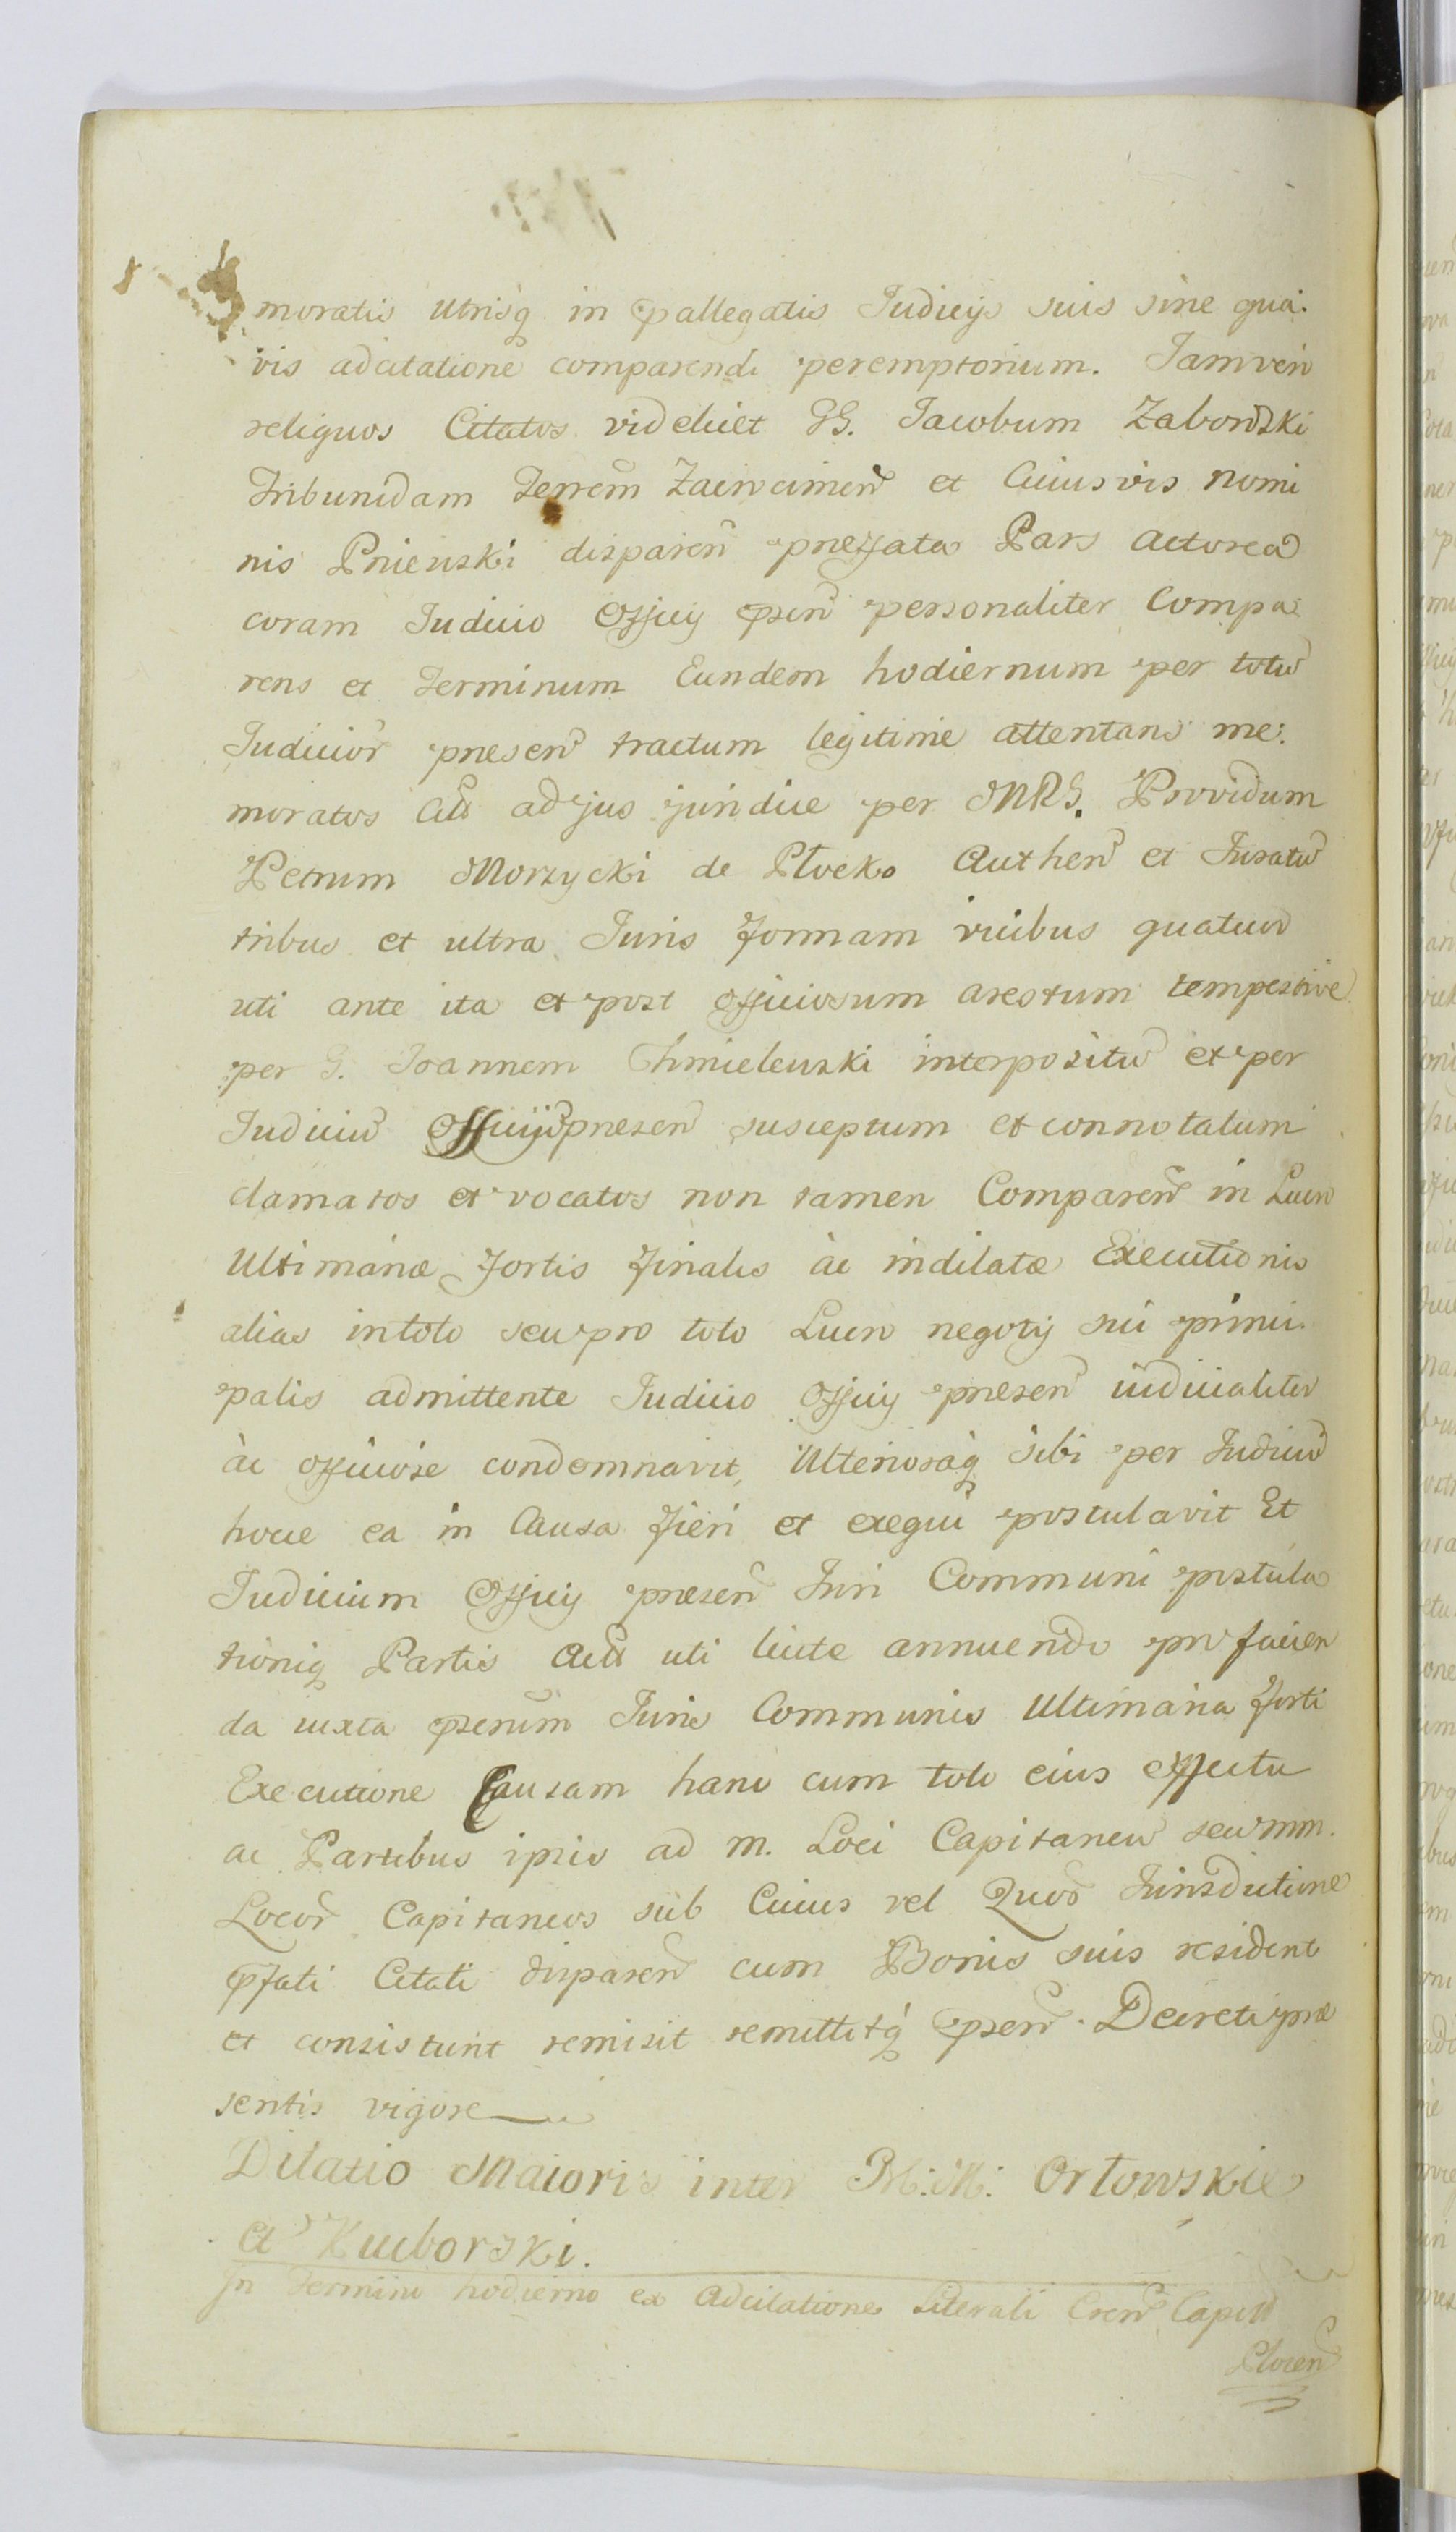 moratis utrisq in pallegatis Judicijs suis sine qua-
vis adcitatione comparendi peremptorium. Jam vero
reliquos Citatos videlicet GG. Jacobum Zaborowski
Tribunidam Terrem Zawcimen et Cuiusvis nomi
nis Pniewski disparen prefata Pars Actorea
coram Judicio Officij psen personaliter Compa
rens et Terminum Eundem hodiernum per totu
Judicior presen tractum legitime attentans me:
moratos Citt ad jus juridice per MRG. Providum
Petrum Morzycki de Płocko Authen et Juratu
tribus et ultra Juris formam vicibus quatuor
uti ante ita et post officiosum arestum tempestive
per G. Joannem Chmielewski interpositu et per
Judiciu Officij presen susceptum et connotatum
clamatos et vocatos non tamen Comparen in Lucro
Ultimanæ fortis finalis ac indilatæ Executionis
alias in toto seu pro toto Lucro negotij sui princi-
palis admittente Judicio Officij presen iudicialiter
ac officiose condemnavit, Ulterioraq sibi per Judiciu
hocce ea in Causa fieri et exequi postulavit Et
Judicium Officij præsen Juri Communi postula
tioniq Partis Actt uti licite annuendo pro facien
da iuxta pserum Juris Communis Ultimaria forti
Executione Causam hanc cum toto eius effectu
ac Partibus ipsis ad m. Loci Capitaneu seu mm.
Locor Capitaneos sub Cuius vel Quor Jurisdictione
pfati Citati disparen cum Bonis suis resident
et consistunt remisit remittitq psen Decreti præ
sentis vigore
Dilatio Maioris inter M: M: Orłowskie
et Kuciborski.
In Termino hodierno ex Adcitatione Literali Cren Capitt
Plocen